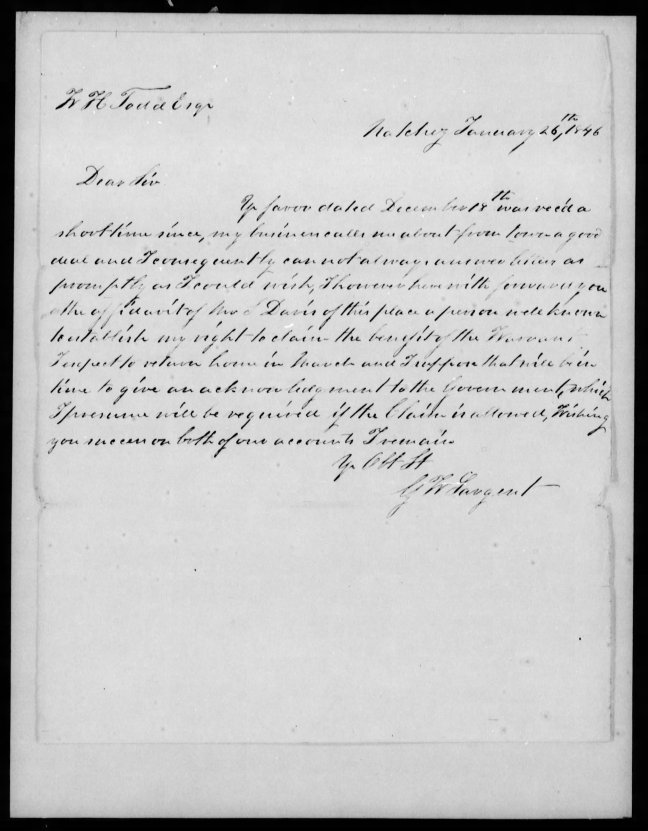 W H Todd Esqr
Natchez January 26th, 1846
Dear Sir
Yr favor dated December 18th was rec'd a
short time since, my business calls me about from town a good
deal and I consequently cannot always answer letters as
promptly as I could wish, I however herewith forward you
the affidavit of Mr S Davis of this place a person well known
to establish my right to claim the benefit of the Warrant
I expect to return home in March and I suppose that will be in
time to give an acknowledgment to the Government, which
I presume will be required if the Claim is allowed, Wishing
you success on both of our accounts I remain
Yr Obt St
G W Sargent